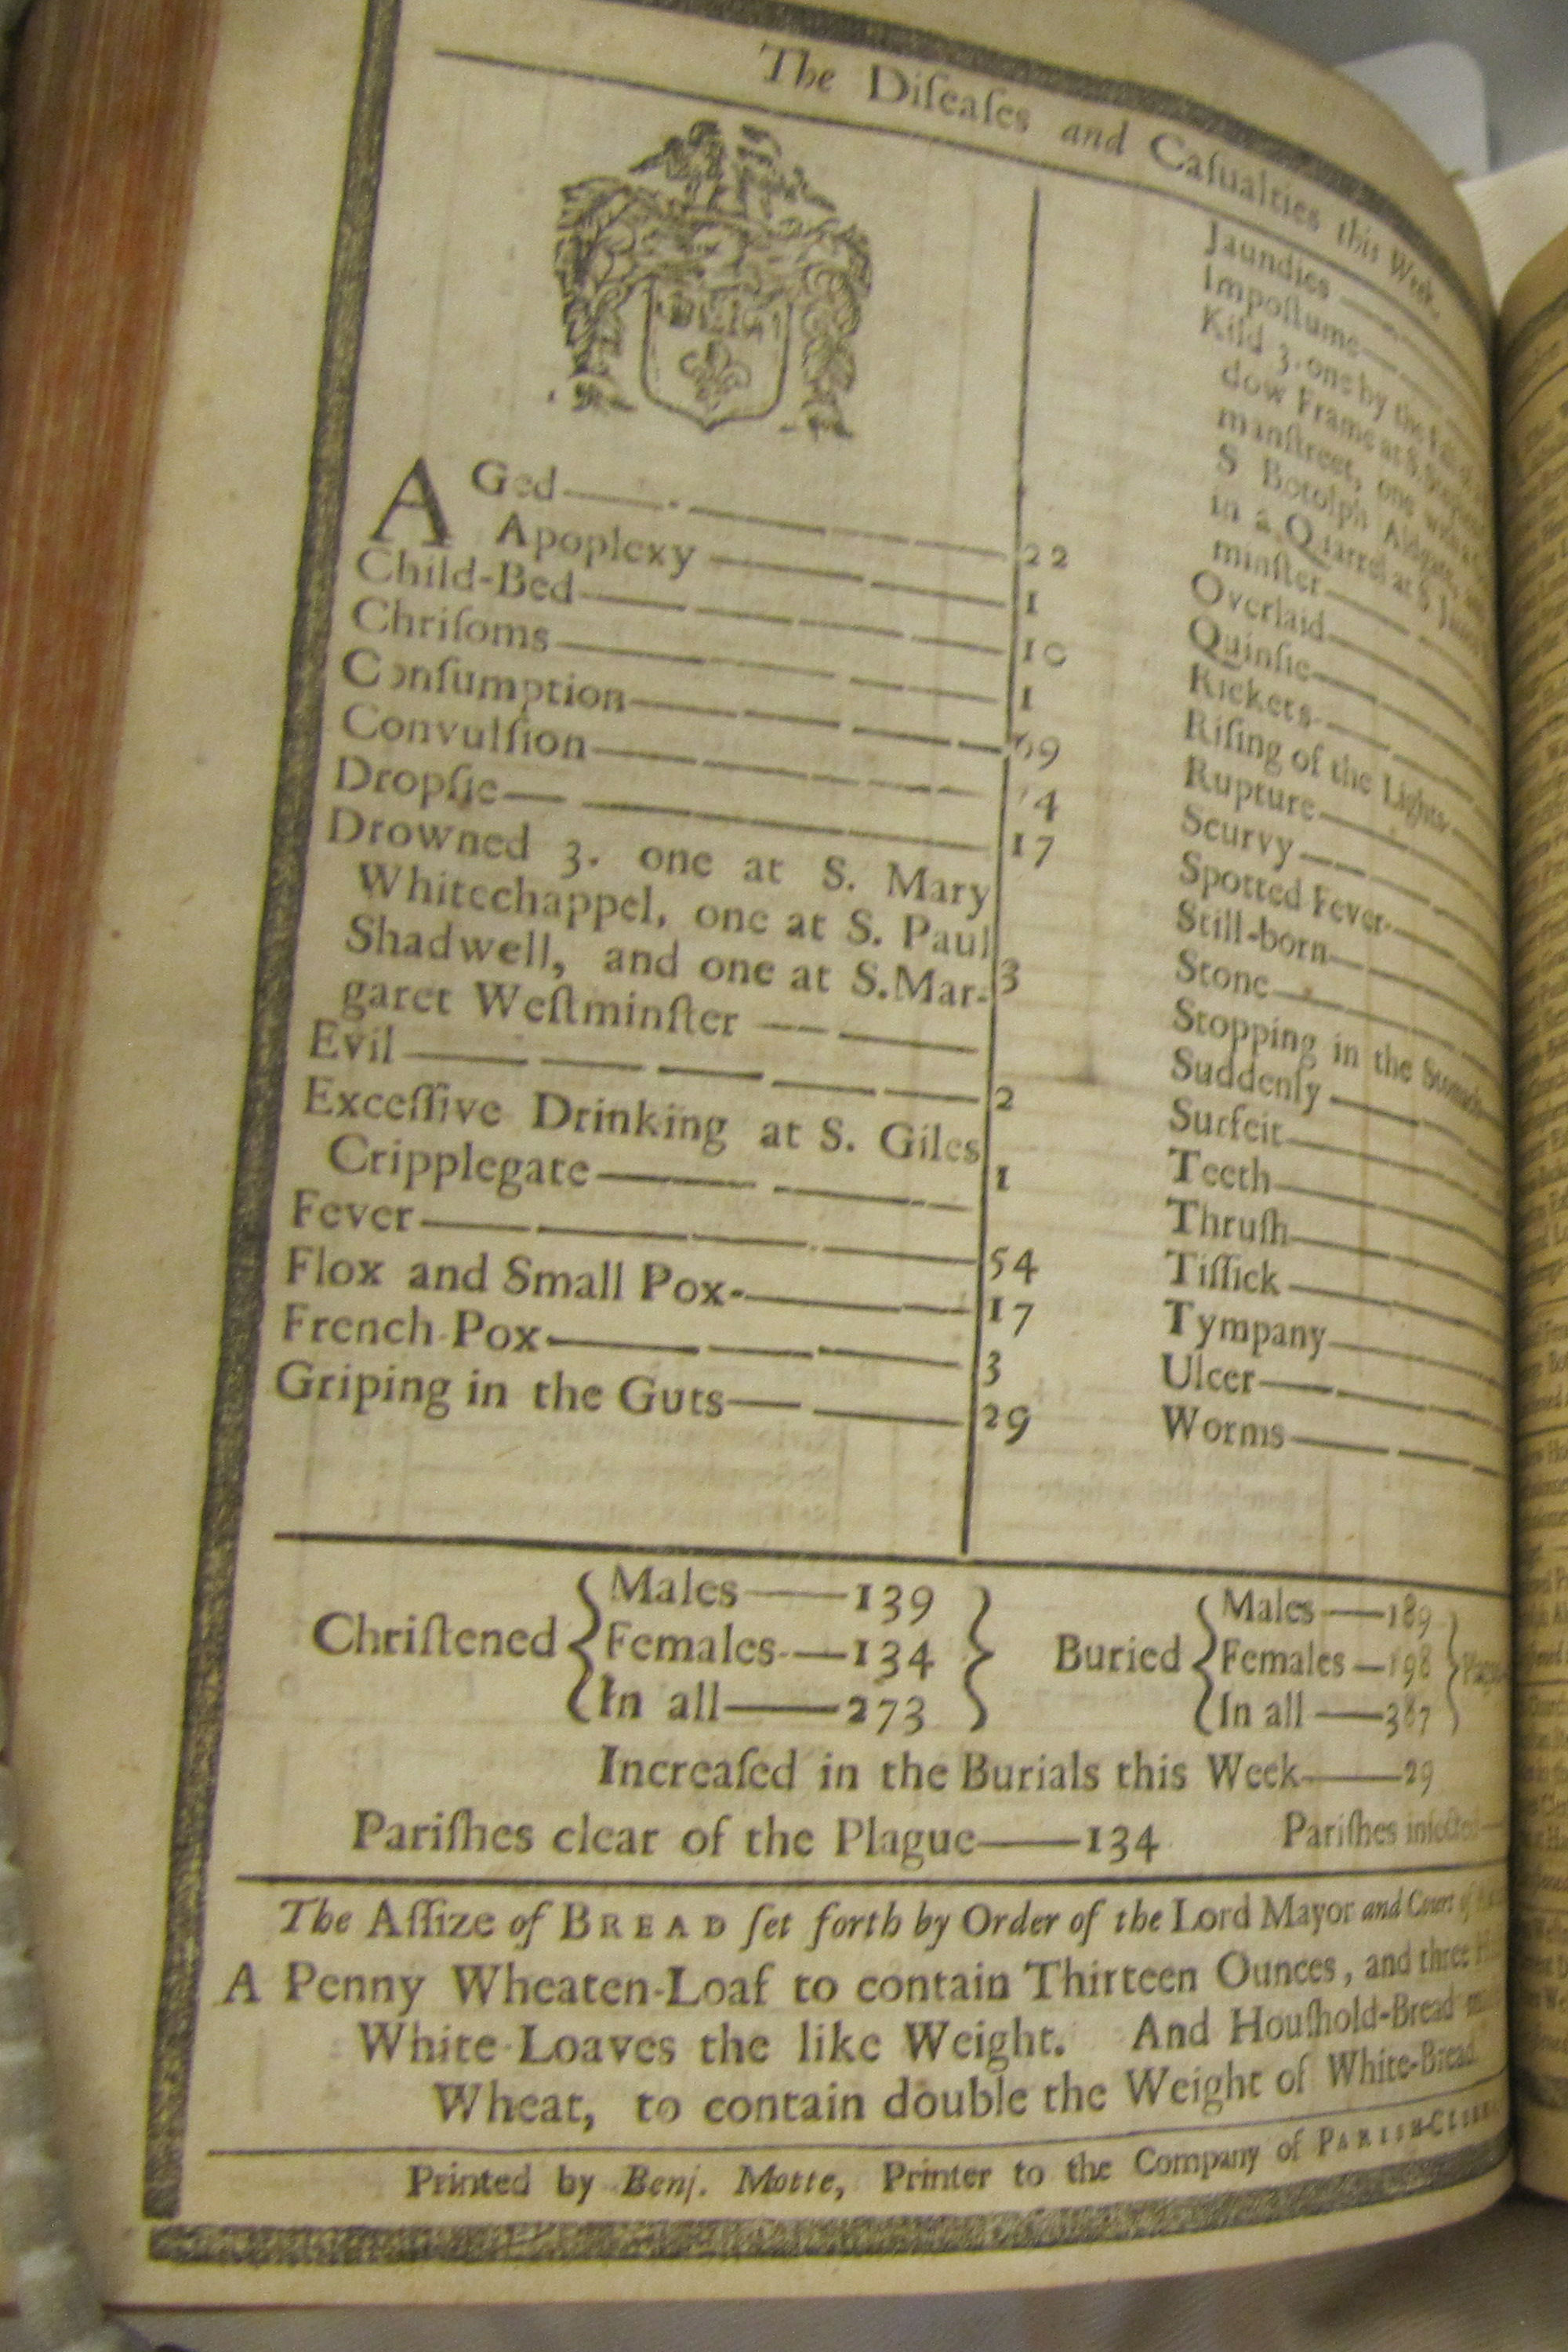 The Diſeaſes and Caſualties this Week.
AGed 22
Apoplexy 1
Child-Bed 10
Chriſoms 1
Conſumption 69
Convulſion
Dropſie 17
Drowned 3. one at S. Mary
Whitechappel, one at S. Paul
Shadwell, and one at S.Mar-
garet Weſtminſter 3
Evil 2
Exceſſive Drinking at S. Giles
Cripplegate 1
Fever 54
Flox and Small Pox 17
French Pox 3
Griping in the Guts 29
Jaundies
Impoſtume
Kild 3. one by the
dow Frame at S.
manſtreet, one with a
S Botolph Aldgate,
in a Quarrel at S
minſter
Overlaid
Quinſie
Rickets
Riſing of the Lights
Rupture
Scurvy
Spotted Fever
Still-born
Stone
Stopping in the Stomach
Suddenly
Surfeit
Teeth
Thruſh
Tiſſick
Tympany
Ulcer
Worms
Chriſtened { Males 139
Females 134
In all 273 }
Buried { Males 189
Females 198
In all 387 }
Increaſed in the Burials this Week 29
Pariſhes clear of the Plague 134 Pariſhes infected
The Aſſize of BREAD ſet forth by Order of the Lord Mayor and Court of
A Penny Wheaten-Loaf to contain Thirteen Ounces, and three
White Loaves the like Weight. And Houſhold-Bread
Wheat, to contain double the Weight of White-Bread
Printed by Benj. Motte, Printer to the Company of